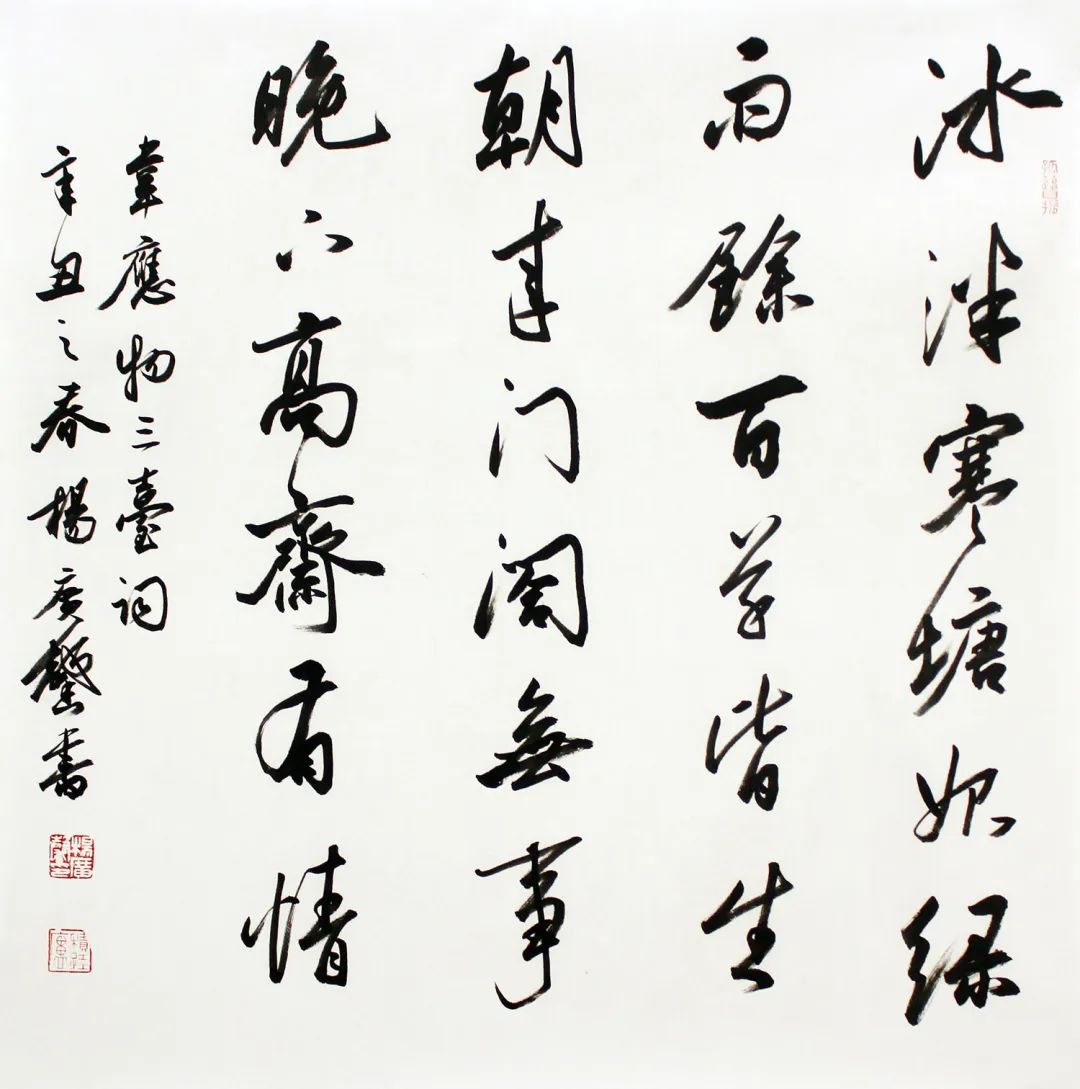 冰泮寒塘始绿
雨餘百草皆生
朝来门阁無事
晚下高齋有情
韋應物三臺詞
辛丑之春楊廣馨書